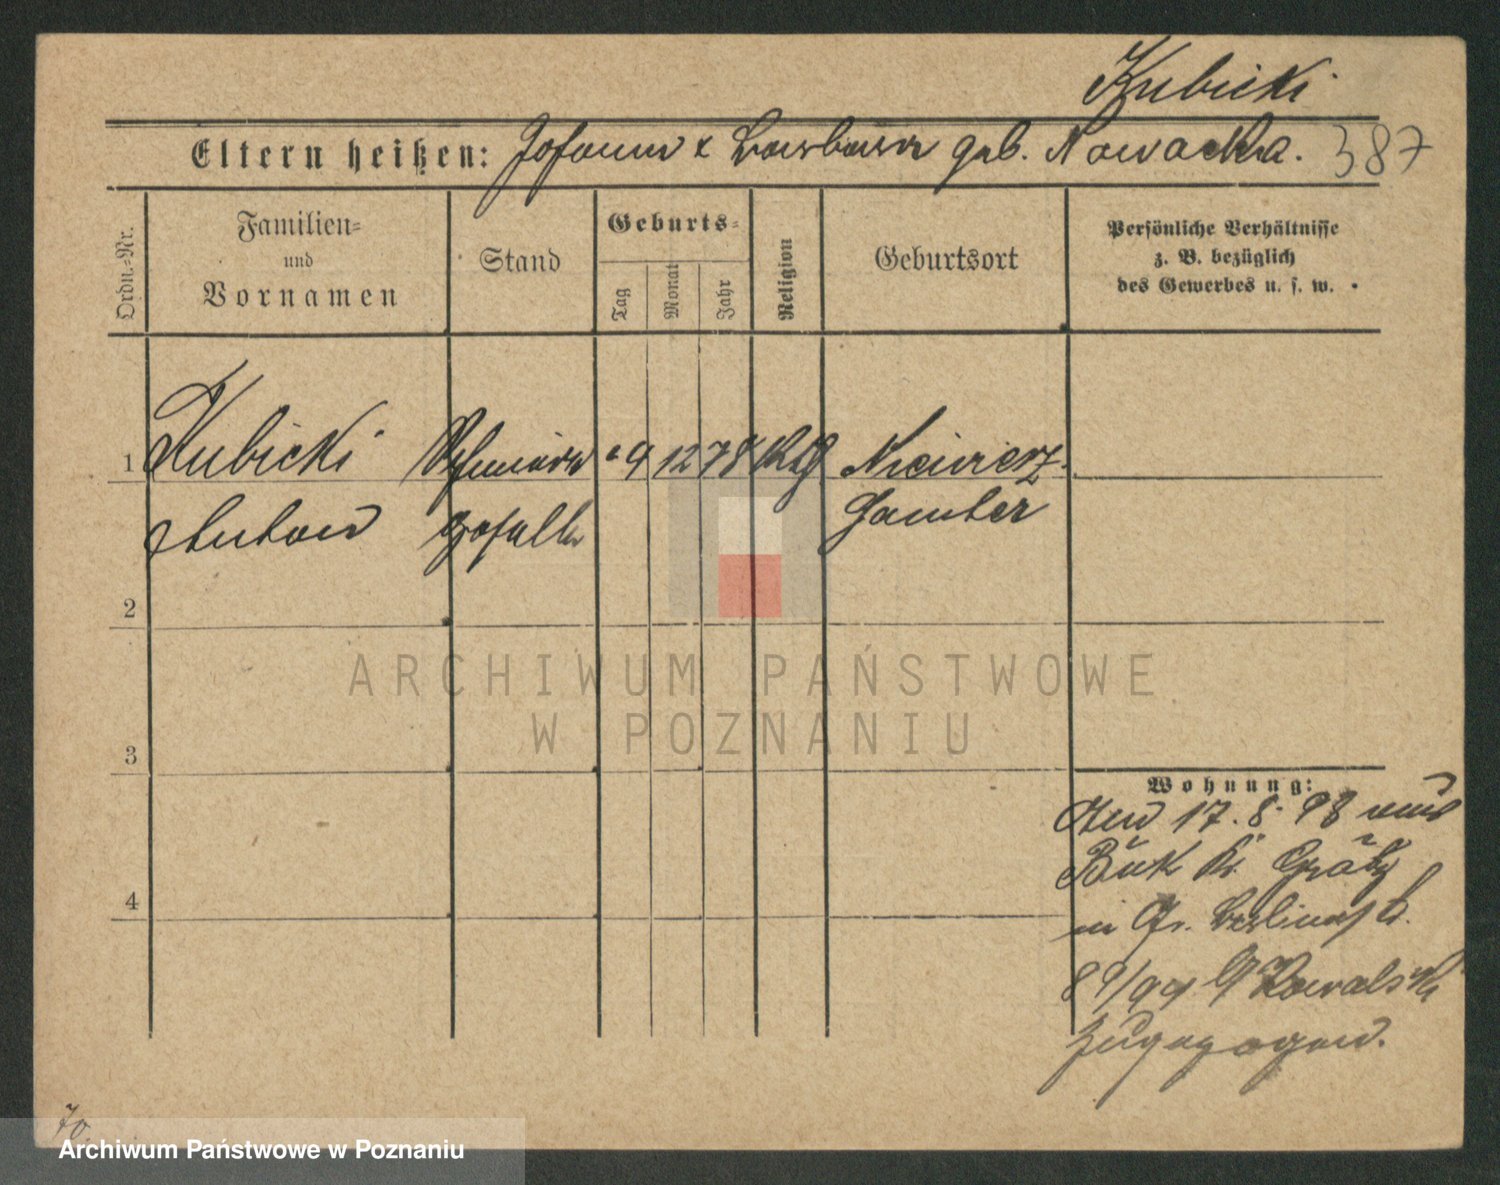 Kubicki
Eltern heißen: Johann & Barbara geb. Nowacka. 387
Ordn.-Nr.
Familien-
und
Vornamen
Stand
Geburts-
Tag
Monat
Jahr
Religion
Geburtsort
Persönliche Verhältnisse
z. B. bezüglich
des Gewerbes u. s. w.
1 Kubicki 9 12 78 Kth
Anton
Samter
2
3
4
ARCHIWUM PAŃSTWOWE
W POZNANIU
Wohnung:
Am 17. 8. 98 aus
Buk Kr. Grätz
in Gr. Berlinerstr.
Kowalski
zugezogen.
70
Archiwum Państwowe w Poznaniu